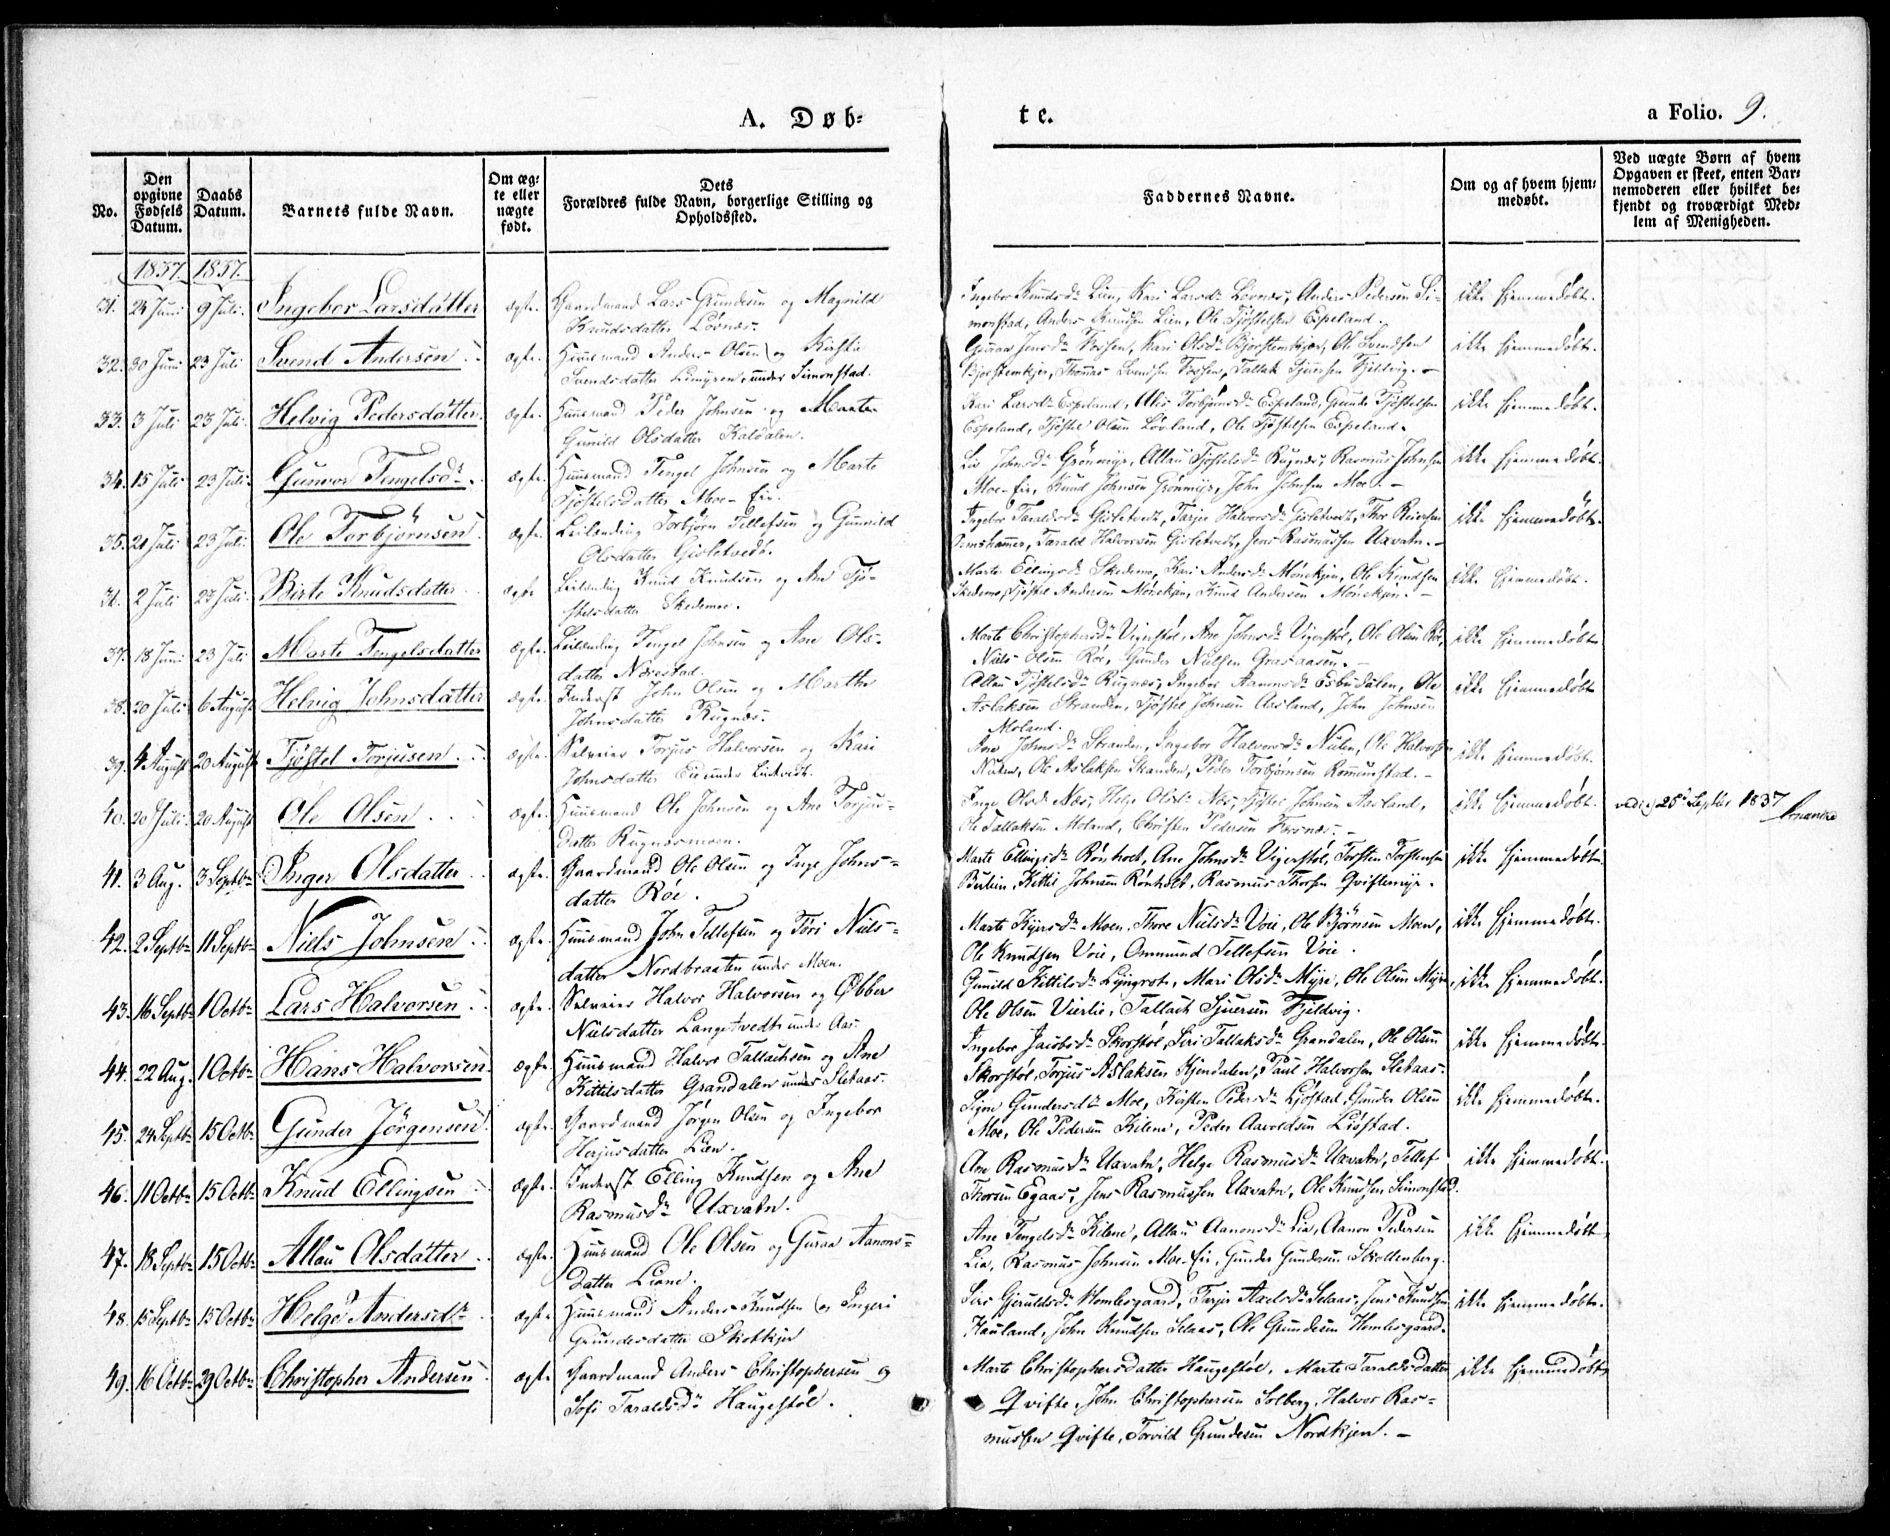 A. Døb-
te.
a Folio. 9.
No.
Den opgivne Fødsels Datum.
Daabs Datum.
Barnets fulde Navn.
Om ægte eller uægte født.
Dets Forældres fulde Navn, borgerlige Stilling og Opholdssted.
Faddernes Navne.
Om og af hvem hjemmedøbt.
Ved uægte Børn af hvem Opgaven er skeet, enten Barnemoderen eller hvilket bekjendt og troværdigt Medlem af Menigheden.
1837. 1837.
31. 24 Juni 9 Juli. Ingebor Larsdatter ægte. Gaardmand Lars Grundesen og Magnild Ingebor Knudsd. Lien, Kari Larsd. Løvnæs, Anders Pedersen Si- ikke hjemmedøbt.
Knudsdatter Løvnæs. monstad, Anders Knudsen Lien, Ole Tjøstelsen Espeland.
32. 30 Juni 23 Juli Svend Andersen ægte. Huusmand Anders Olsen og Kirsti ikke hjemmedøbt.
Svendsdatter under Simonstad. Thomas Svendsen Fjeldvig.
33. 3 Juli 23 Juli Helvig Pedersdatter. ægte. Huusmand Peder Johnsen og Kari Larsd. Espeland, Torbjørnsd. Espeland, Gunde Tjøstelsen ikke hjemmedøbt.
Gunild Olsdatter Kaldalen. Espeland, Tjøstel Olsen Løvland, Ole Tjøstelsen Espeland.
34. 15 Juli 23 Juli Gunvor Tengelsd. ægte. Huusmand Tengel Johnsen og Marte Liv Johnsd. Grønmyr, Allau Tjøstelsd. Rugnæs, Rasmus Johnsen ikke hjemmedøbt.
Tjøstelsdatter Moe-Eie. Moe-Eie, Knud Johnsen Grønmyr, John Johnsen Moe.
35. 21 Juli 23 Juli Ole Torbjørnsen ægte. Leilænding Torbjørn Tellefsen og Gunnild Ingebor Taraldsd. Gisletvedt, Tarjer Halvorsd. Gisletvedt, Thor Reiersen ikke hjemmedøbt.
Olsdatter Gisletvedt. Tarald Halvorsen Gisletvedt, Jens Rasmussen Uxvatn.
36. 2 Juli 23 Juli Birte Knudsdatter ægte Leilænding Knud Knudsen og Ane Tjø- Marte Ellingsd. Skedemoe, Kari Andersd. Mønekjen, Ole Knudsen ikke hjemmedøbt.
stelsdatter Skedemoe. Skedemoe, Tjøstel Andersen Mønekjen, Knud Andersen Mønekjen.
37. 18 Juni 23 Juli Marte Tengelsdatter ægte. Leilænding Tengel Johnsen og Ane Ols- Marte Christophersd. Vigerstøl, Ane Johnsd. Vigerstøl, Ole Olsen Røe, ikke hjemmedøbt
datter Nævestad. Niels Olsen Røe, Gunder Nielsen Grasaasen.
38. 20 Juli 6 August Helvig Johnsdatter ægte. Inderst John Olsen og Marthe Allau Tjøstelsd. Rugnæs, Ingebor Aanonsd. Esbudalen, Ole ikke hjemmedøbt
Johnsdatter Rugnæs. Aslaksen Stranden, Tjøstel Johnsen Aasland, John Johnsen
Moland.
39. 4 August 20 August Tjøstel Torjusen ægte. Selveier Torjus Halvorsen og Kari Ane Johnsd. Stranden, Ingebor Halvorsd. Nielen, Ole Halvorsen ikke hjemmedøbt.
Johnsdatter Eie under Lindtvedt. Ole Aslaksen Stranden, Peder Torbjørnsen Rommundstad.
40. 20 Juli 20 August Ole Olsen ægte. Huusmand Ole Johnsen og Ane Torjus- Inge Olsd. Næs, Helge Olsd. Næs, Tjøstel Johnsen Aasland, ikke hjemmedøbt. 25 Septbr 1837
datter Rugnæsmoen. Ole Tallaksen Moland, Christen Pedersen
41. 3 Aug. 3 Septbr Inger Olsdatter ægte. Gaardmand Ole Olsen og Inge Johns- Marte Ellingsd. Rønholt, Ane Johnsd. Vigerstøl, Torsten Torstensen ikke hjemmedøbt.
datter Røe. Berlin, Kittil Johnsen Rønholt, Rasmus Thorsen Qviftemyr.
42. 2 Septbr 11 Septbr Niels Johnsen ægte. Huusmand John Tellefsen og Tøri Niels- Marte Moen, Thore Nielsd. Voie, Ole Bjørnsen Moen, ikke hjemmedøbt.
datter Nordbraaten under Moen. Ole Knudsen Voie, Ommund Tellefsen Voie.
43. 16 Septbr 1 Octbr Lars Halvorsen ægte. Selveier Halvor Halvorsen og Gunild Kittilsd. Lyngrot, Mari Olsd. Myre, Ole Olsen Myre, ikke hjemmedøbt.
Nielsdatter Langetvedt under Aas. Ole Olsen Vierlie, Tallach Sjuersen Fjeldvig.
44. 22 Aug. 1 Octbr Hans Halvorsen ægte. Huusmand Halvor Tallachsen og Ane Ingebor Jacobsd. Skorstøl, Siri Tallaksd. Grandalen, Ole Olsen ikke hjemmedøbt.
Kittilsdatter Grandalen under Sletaas. Skorstøl, Torjus Aslaksen Kjendalen, Paul Halvorsen Sletaas.
45. 24 Septbr 15 Octbr Gunder Jørgensen ægte. Gaardmand Jørgen Olsen og Ingebor Signe Gundersd. Moe, Kirsten Pedersd. Liøstad, Gunder Olsen ikke hjemmedøbt.
Herjusdatter Lien. Moe, Ole Pedersen Kilene, Peder Aavoldsen Liøstad.
46. 11 Octbr 15 Octbr Knud Ellingsen ægte. Inderst Elling Knudsen og Ane Ane Rasmusd. Uxvatn, Helge Rasmusd. Uxvatn, Tellef ikke hjemmedøbt.
Rasmusd. Uxvatn. Thorsen Egaas, Jens Rasmussen Uxvatn, Ole Knudsen Simonstad.
47. 18 Septbr 15 Octbr Allau Olsdatter ægte. Huusmand Ole Olsen og Guraa Aanons- Ane Tengelsd. Kilene, Allau Aanonsd. Lia, Aanon Pedersen ikke hjemmedøbt
datter Liane. Lia, Rasmus Johnsen Moe-Eie, Gunder Gundersen Skollenberg.
48. 15 Septbr 15 Octbr Helge Andersd. ægte. Huusmand Anders Knudsen og Ingeri Siri Gjeruldsd. Hemlesgaard, Tarjer Axelsd. Selaas, Jens Knudsen ikke hjemmedøbt.
Grundesdatter Skotkjer John Knudsen Selaas, Ole Grundesen Hemlesgaard.
49. 16 Octbr 29 Octbr Christopher Andersen ægte. Gaardmand Anders Christophersen og Marte Christophersdatter Haugestøl, Marte Taraldsdatter ikke hjemmedøbt
Sofi Taraldsd. Haugestøl. Qvifte, John Christophersen Solberg, Halvor Ras-
mussen Qvifte, Torvild Grundesen Nordkjen.